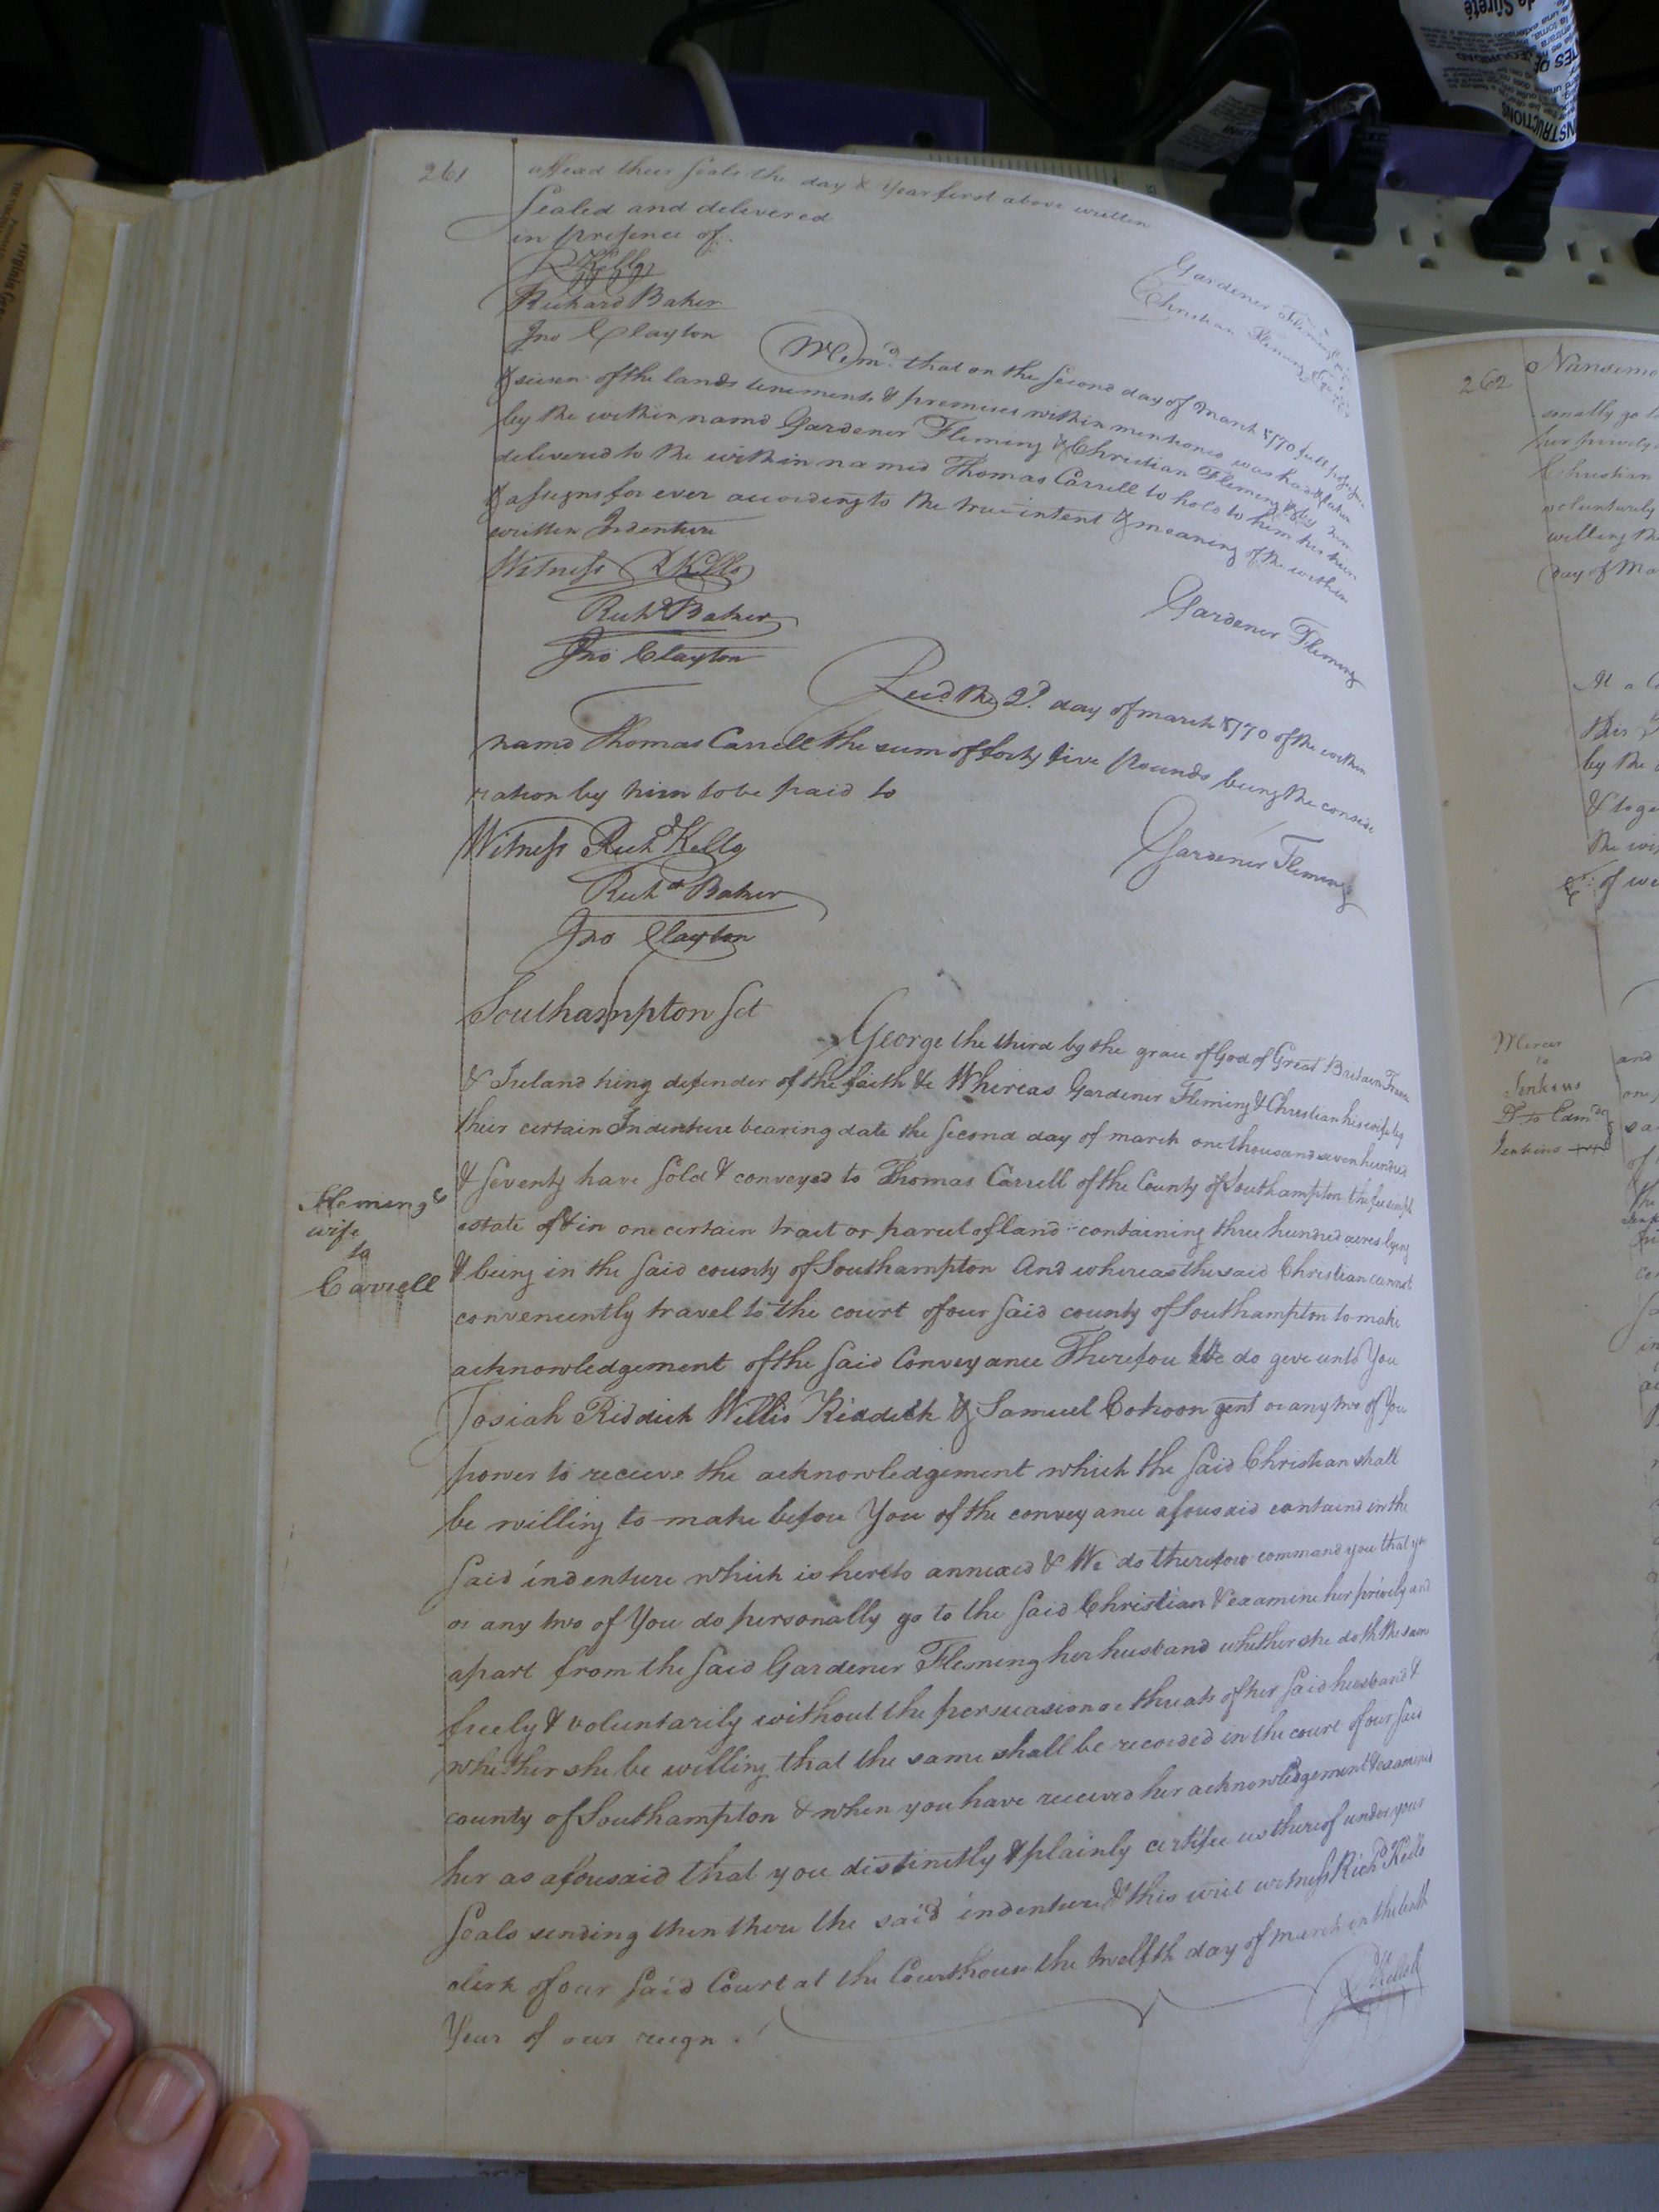 261
affixed their seals the day & Year first above written
Sealed and delivered
in presence of
R Kello
Richard Baker
Jno Clayton
Gardener Fleming
Christian Fleming
Mem.d that on the Second day of March 1770 full
& seisen of the lands tenements & premises within mentioned was had & taken
by the within namd Gardener Fleming & Christian Fleming & by him
delivered to the within named Thomas Carrell to hold to him his heirs
& assigns for ever according to the true intent & meaning of the within
written Indenture
Witness R Kello
Richd Baker
Jno Clayton
Gardener Fleming
Recd. the 2d. day of march 1770 of the within
namd Thomas Carrell the sum of forty five Pounds being the conside
ration by him to be paid to
Witness Richd Kello
Richd Baker
Jno Clayton
Gardener Fleming
Southampton Sct
George the third by the grace of God of Great Britain France
& Ireland king defender of the faith &c Whereas Gardener Fleming & Christian his wife by
their certain Indenture bearing date the Second day of march one thousand seven hundred
& Seventy have Sold & conveyed to Thomas Carrell of the County of Southampton the fee simple
estate of & in one certain tract or parcel of land containing three hundred acres lying
& being in the Said county of Southampton And whereas the said Christian cannot
conveniently travel to the court of our Said county of Southampton to make
acknowledgement of the Said Conveyance Therefore We do give unto You
Josiah Riddick Willis Riddick & Samuel Cohoon gent or any two of You
power to recieve the acknowledgement which the Said Christian shall
be willing to make before You of the conveyance aforesaid containd in the
Said indenture which is hereto annexed & We do therefore command you that you
or any two of You do personally go to the Said Christian & examine her privily and
apart from the Said Gardener Fleming her husband whether she doth the same
freely & voluntarily without the persuasion or threats of her Said husband &
whether she be willing that the same shall be recorded in the court of our Said
county of Southampton & when you have received her acknowledgement & examined
her as aforesaid that you distinctly & plainly certifee us thereof under your
Seals sending then there the said indenture & this writ witness Richd Kello
clerk of our Said Court at the Courthouse the twelfth day of march in the tenth
Year of our reign.
R Kello
Fleming &
wife
to
Carrell
262
Nansemo
sonally go
Christian
voluntarily
willing the
day of Ma
At a C
this
by the
& toge
the wit
of we
Mercer
to
Jenkins
Jenkins
and
one
INSTRUCTIONS
de Sûreté